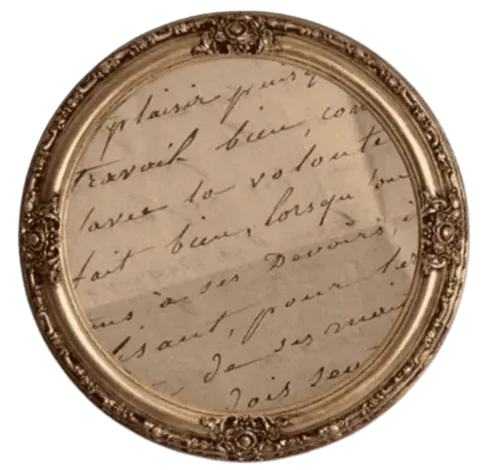 plaisir puisq
travail bien, con
avec la volonté
fait bien, lorsqu'on
à ses Devoirs, i
isant, pour les
de ses mai
dois seu